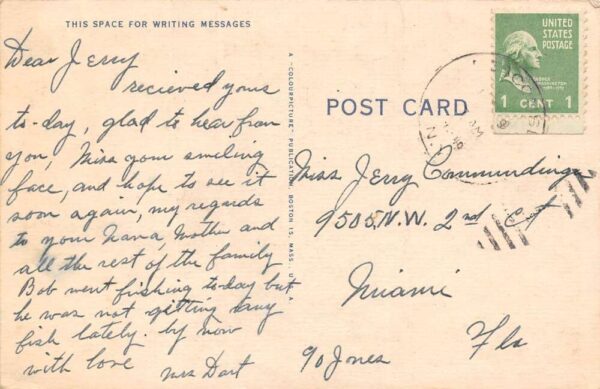 THIS SPACE FOR WRITING MESSAGES
Dear Jerry
recieved yours
to-day, glad to hear from
you, Miss your smiling
face, and hope to see it
soon again, my regards
to your Nana, Mother and
all the rest of the family
Bob went fishing to-day but
he was not getting any
fish lately. by now
with love
Mrs Dart
A "COLOURPICTURE" PUBLICATION BOSTON 15, MASS., U. S. A.
POST CARD
UNITED
STATES
POSTAGE
1 CENT 1
Miss Jerry Commundinga
9505 N.W. 2nd Ct
Miami
Fla
c/o Jones